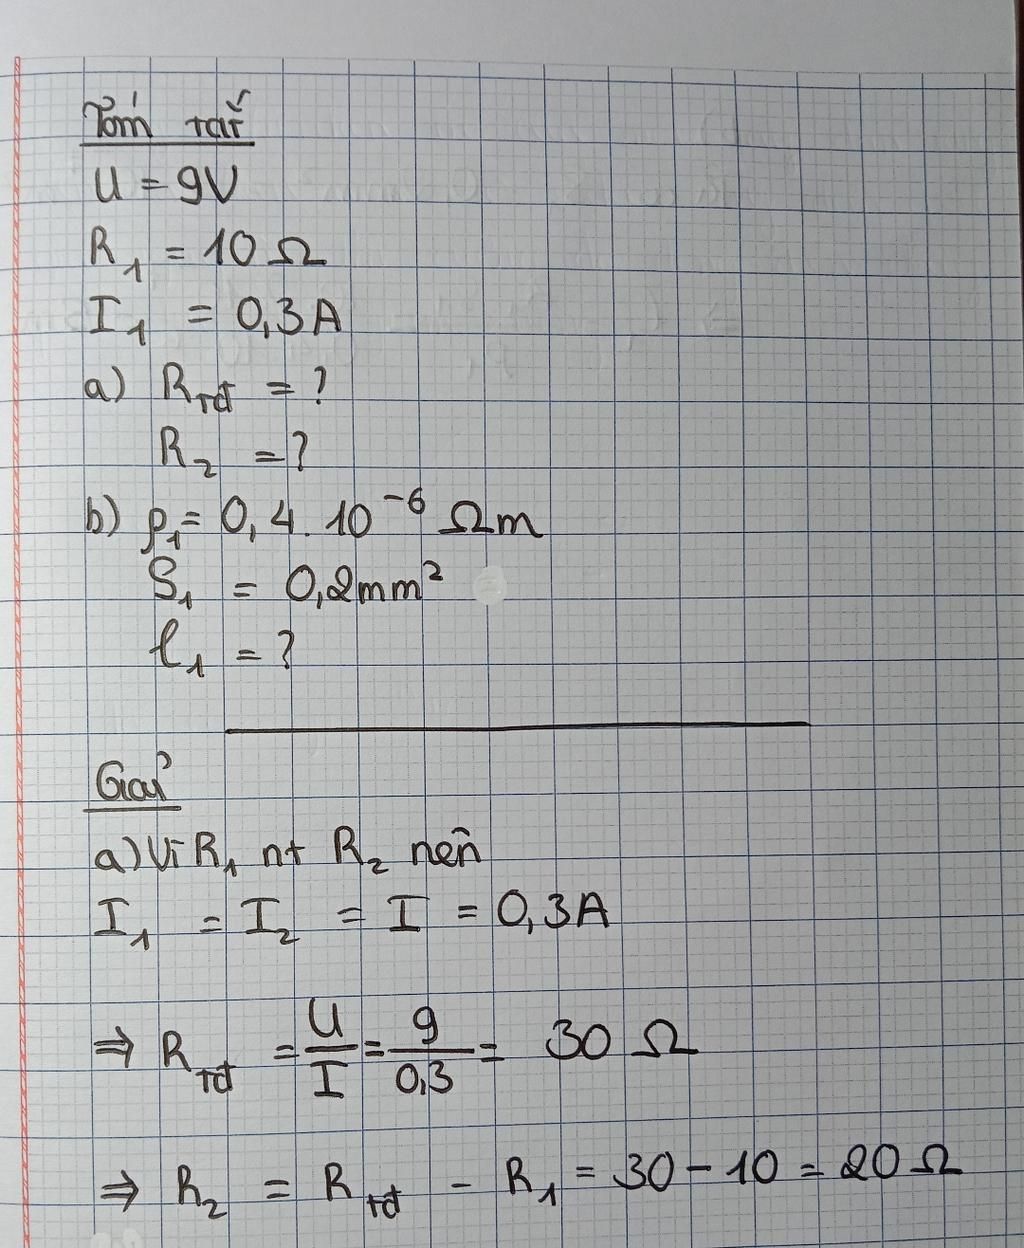 Tóm tắt
U = 9V
R₁ = 10 Ω
I₁ = 0,3A
a) Rtđ = ?
R₂ = ?
b) ρ₁ = 0,4.10⁻⁶ Ωm
S₁ = 0,2mm²
l₁ = ?
Giải
a) Vì R₁ nt R₂ nên
I₁ = I₂ = I = 0,3A
⇒ Rtđ = U/I = 9/0,3 = 30 Ω
⇒ R₂ = Rtđ - R₁ = 30 - 10 = 20 Ω